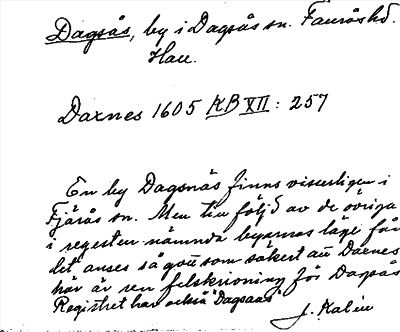 Dagsås, by i Dagsås sn. Faurås hd.
Hall.
Daxnes 1605 KB VII : 257
En by Dagsnäs finns visserligen i
Fjärås sn. Men till följd av de övriga
i registren nämnda byarnas läge får
det anses så gott som säkert att Daxnes
här är ren felskrivning för Dagsås
Registret har också "Dagsaas"
J. Kalén